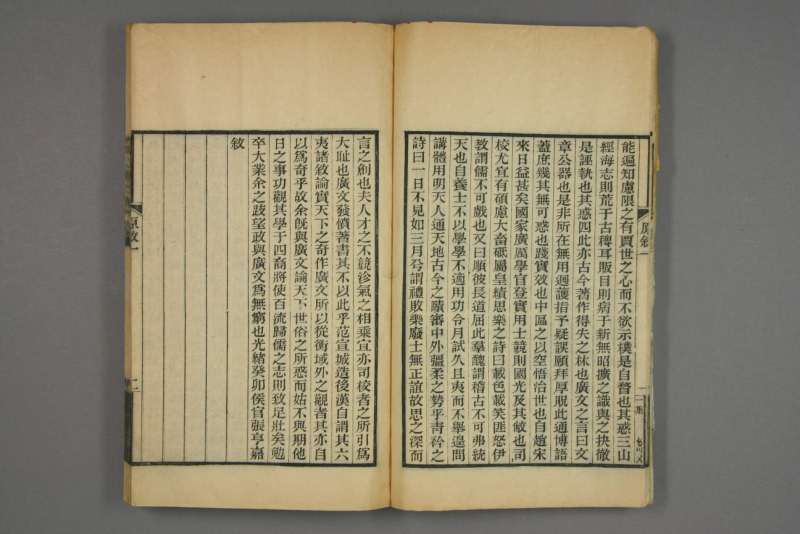 能遍知慮限之有買世之心而不欲示樸是自瞀也其惑三山
經海志則荒于古稗耳販目則病于新無昭擴之識與之抉徹
是誣執也其惑四此亦古今著作得失之林也廣文之言曰文
章公器也是非所在無用迴護指予疑誤願拜厚貺此通博語
蓋庶幾其無可惑也踐實效也中區之以空悟治世也自趙宋
來日益甚矣國家廣厲學官登實用士競則國光及其敏也司
校尤宜有碩慮大畜砥屬皇績思樂之詩曰載色載笑匪怒伊
教謂儒不可戲也又曰順彼長道屈此羣醜謂稽古不可弗統
天也自養士不以學學不適用功令月試久且夷而不舉遑問
講體用明天人通天地古今之賾審中外彊柔之勢乎青衿之
詩曰一日不見如三月兮謂禮敗樂廢士無正誼故思之深而
言之創也夫人才之不競沴氣之相乘宜亦司校者之所引爲
大耻也廣文發憤著書其不以此乎范宣城造後漢自謂其六
夷諸敘論實天下之奇作廣文所以從衡域外之觀者其亦自
以爲奇乎故余旣與廣文論天下世俗之所惑而姑不與期他
日之事功觀其學于四裔將使百流歸儒之志則致足壯矣勉
卒大業余之跂望政與廣文爲無窮也光緒癸卯侯官張亨嘉
敘
原敘一
二